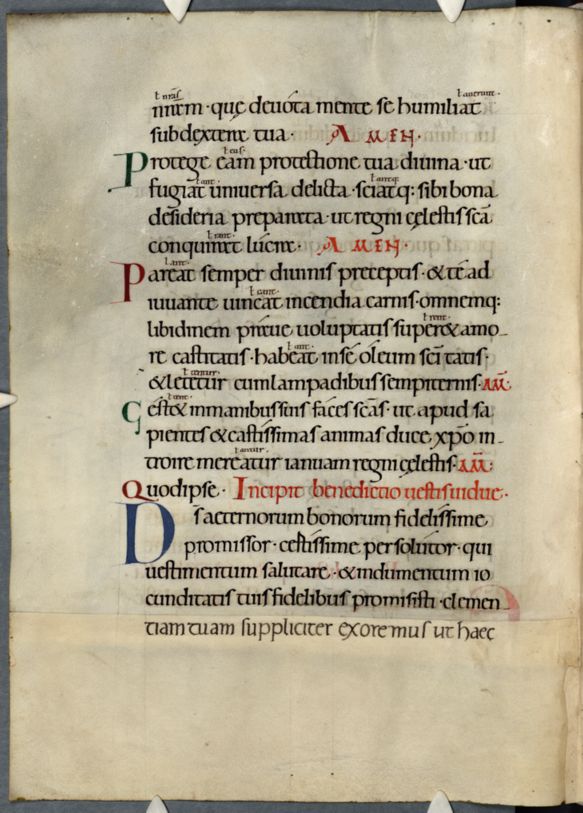 ł nr̄as ł auerunt·
nr̄am · quę deuota mente se humiliat
sub dextere tua · AMEN ·
ł eas·
Protege eam protectione tua diuina · ut
ł ant· ł antq:
fugiat uniuersa delicta · sciatq: sibi bona
desideria preparata · ut regni cęlestis scā
ł rant·
conquirat lucra · AMEN ·
ł ant·
Pareat semper diuinis preceptis · & te ad
ł cant·
iuuante uincat incendia carnis · omnemq:
ł rent·
libidinem praue uoluptatis super& amo-
ł ant·
re castitatis · habeat in se oleum sc̄itatis ·
ł tentur·
& letetur cum lampadibus sempiternis · AM̄:
ł tent·
Gest& in manibus suis faces scās · ut apud sa
pientes & castissimas animas duce xp̄o in-
ł antur·
troire mereatur ianuam regni cęlestis · AM̄:
Quod ipse · Incipit benedictio uestis uidue ·
Ds̄ aeternorum bonorum fidelissime
promissor · certissime persolutor · qui
uestimentum salutare · & indumentum io
cunditatis tuis fidelibus promisisti · clemen
tiam tuam suppliciter exoremus ut haec